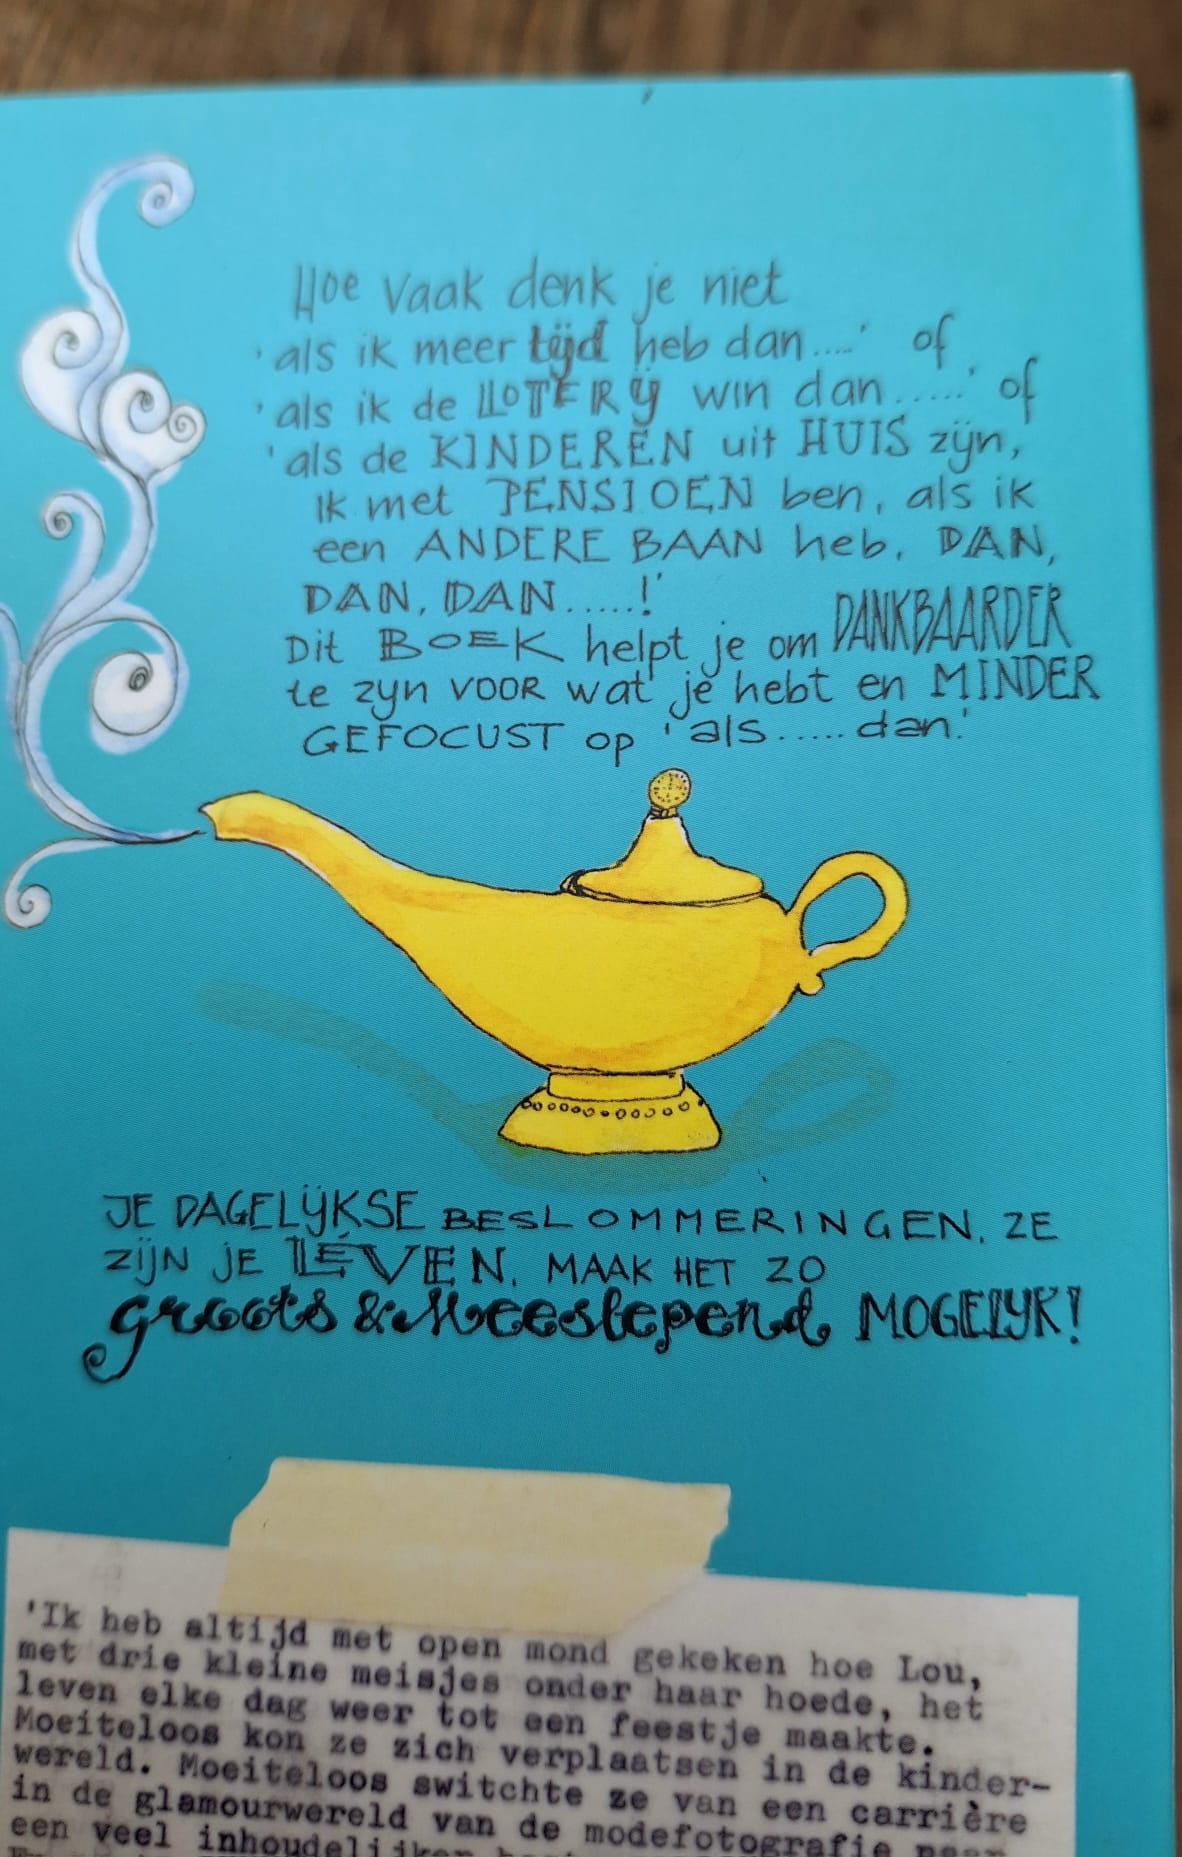 Hoe vaak denk je niet
'als ik meer tijd heb dan.....' of
'als ik de LOTERIJ win dan.....' of
'als de KINDEREN uit HUIS zijn,
ik met PENSIOEN ben, als ik
een ANDERE BAAN heb, DAN,
DAN, DAN.....!'
Dit BOEK helpt je om DANKBAARDER
te zijn VOOR wat je hebt en MINDER
GEFOCUST op 'als.....dan.'
JE DAGELIJKSE BESLOMMERINGEN, ZE
ZIJN JE LEVEN. MAAK HET ZO
Groots & Meeslepend MOGELIJK!
'Ik heb altijd met open mond gekeken hoe Lou,
met drie kleine meisjes onder haar hoede, het
leven elke dag weer tot een feestje maakte.
Moeiteloos kon ze zich verplaatsen in de kinder-
wereld. Moeiteloos switchte ze van een carrière
in de glamourwereld van de modefotografie naar
een veel inhoudelijker